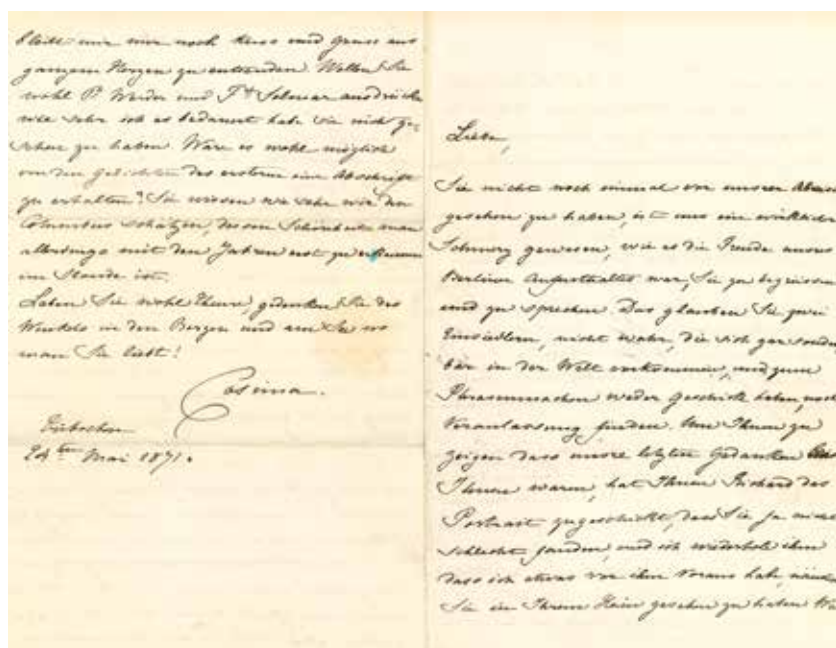 bleibt mir nur noch Kuss und Gruss aus
ganzem Herzen zu entsenden. Wollen Sie
wohl Pr. Werder und Fr. ausdrücken
wie sehr ich es bedauert habe sie nicht ge-
sehen zu haben. Wäre es wohl möglich
von den Gedichten des ersteren eine Abschrift
zu erhalten? Sie wissen wie sehr wir den
Columbus schätzen, dessen Schönheiten man
allerdings mit den Jahren erst zu erkennen
im Stande ist.
Leben Sie wohl Theure, gedenken Sie des
Winkels in den Bergen und am See wo
man Sie liebt!
Cosima.
Tribschen
24ten Mai 1871.
Liebe,
Sie nicht noch einmal vor unserer
gesehen zu haben, ist uns ein wirklicher
Schmerz gewesen, wie es die Freude unsres
Berliner Aufenthaltes war, Sie zu begrüssen
und zu sprechen. Das glauben Sie zwei
Einsiedlern, nicht wahr, die sich gar sonder
bar in der Welt vorkommen, und zum
Phrasenmachen weder Geschick haben, noch
Veranlassung finden. Um Ihnen zu
zeigen dass unsre letzten Gedanken
Ihnen waren, hat Ihnen Richard das
Portrait zugeschickt, dass Sie ja nicht
schlecht fanden, und ich wiederhole ihm
dass ich etwas vor ihm Voraus habe,
Sie in Ihrem Heim gesehen zu haben